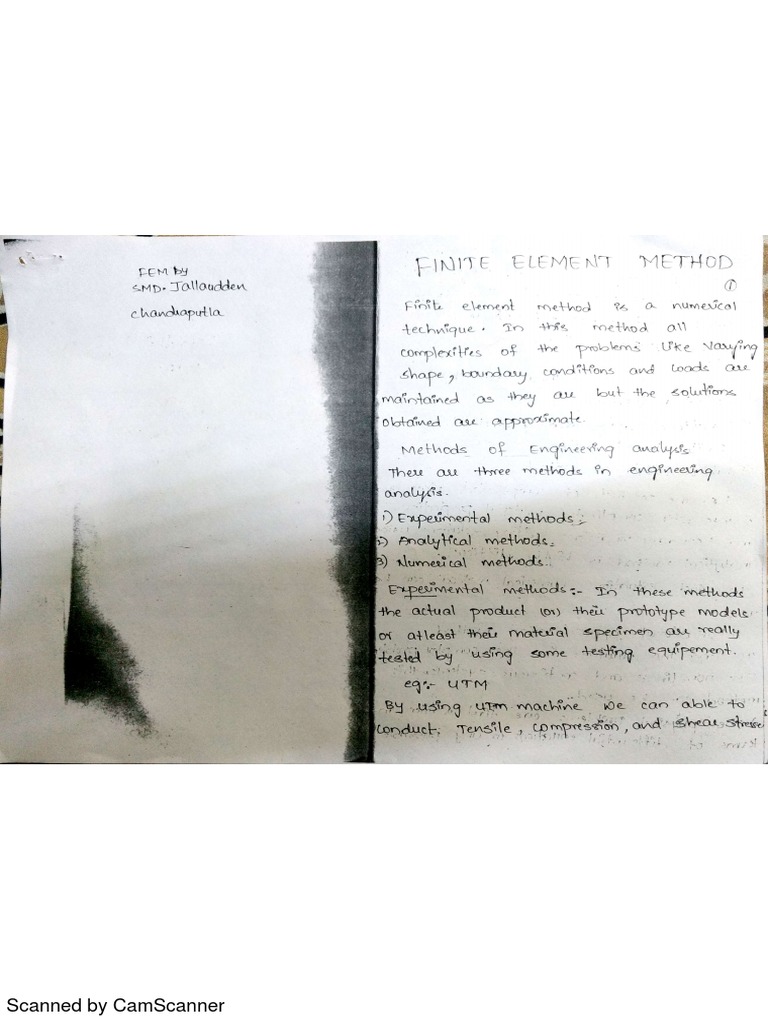 FEM by
SMD. Jallaudden
chandraputla
FINITE ELEMENT METHOD
①
Finite element method is a numerical
technique. In this method all
complexities of the problems like varying
shape, boundary conditions and loads are
maintained as they are but the solutions
obtained are approximate.
Methods of Engineering analysis
There are three methods in engineering
analysis.
1) Experimental methods.
2) Analytical methods.
3) Numerical methods.
Experimental methods:- In these methods
the actual product (or) their prototype models
or atleast their material specimen are really
tested by using some testing equipement.
eg:- UTM
By using UTM machine we can able to
conduct. Tensile, compression, and shear stresse
Scanned by CamScanner